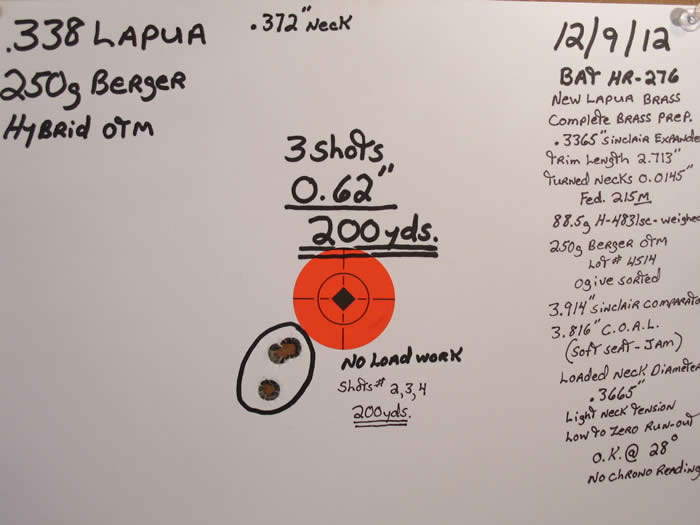 .338 LAPUA
250g BERGER
HYBRID OTM
.372" NECK
3 SHOTS
0.62"
200yds.
NO LOAD WORK
SHOTS# 2,3,4
200yds.
12/9/12
BAT HR-276
NEW LAPUA BRASS
COMPLETE BRASS PREP.
.3365" SINCLAIR EXPANDE
TRIM LENGTH 2.713"
TURNED NECKS 0.0145"
FED. 215M
88.5g H-4831sc-weighed
250g BERGER OTM
LOT# 4514
OGIVE SORTED
3.914" SINCLAIR COMPARATO
3.816" C.O.A.L.
(SOFT SEAT-JAM)
LOADED NECK DIAMETER
.3665"
LIGHT NECK TENSION
LOW TO ZERO RUN-OUT
O.K. @ 28°
NO CHRONO READING